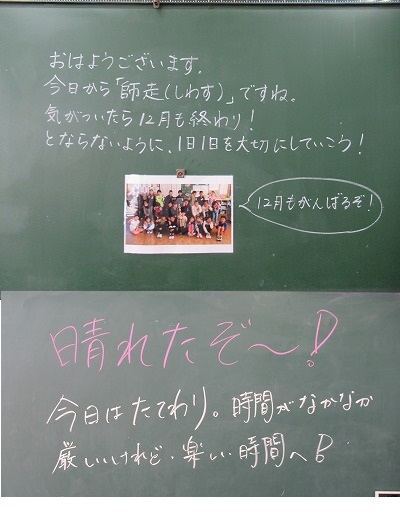 おはようございます。
今日から「師走(しわす)」ですね。
気がついたら12月も終わり!
とならないように、1日1日を大切にしていこう!
12月もがんばるぞ!
晴れたぞ～!
今日はたてわり。時間がなかなか
厳しいけれど・楽しい時間へ!